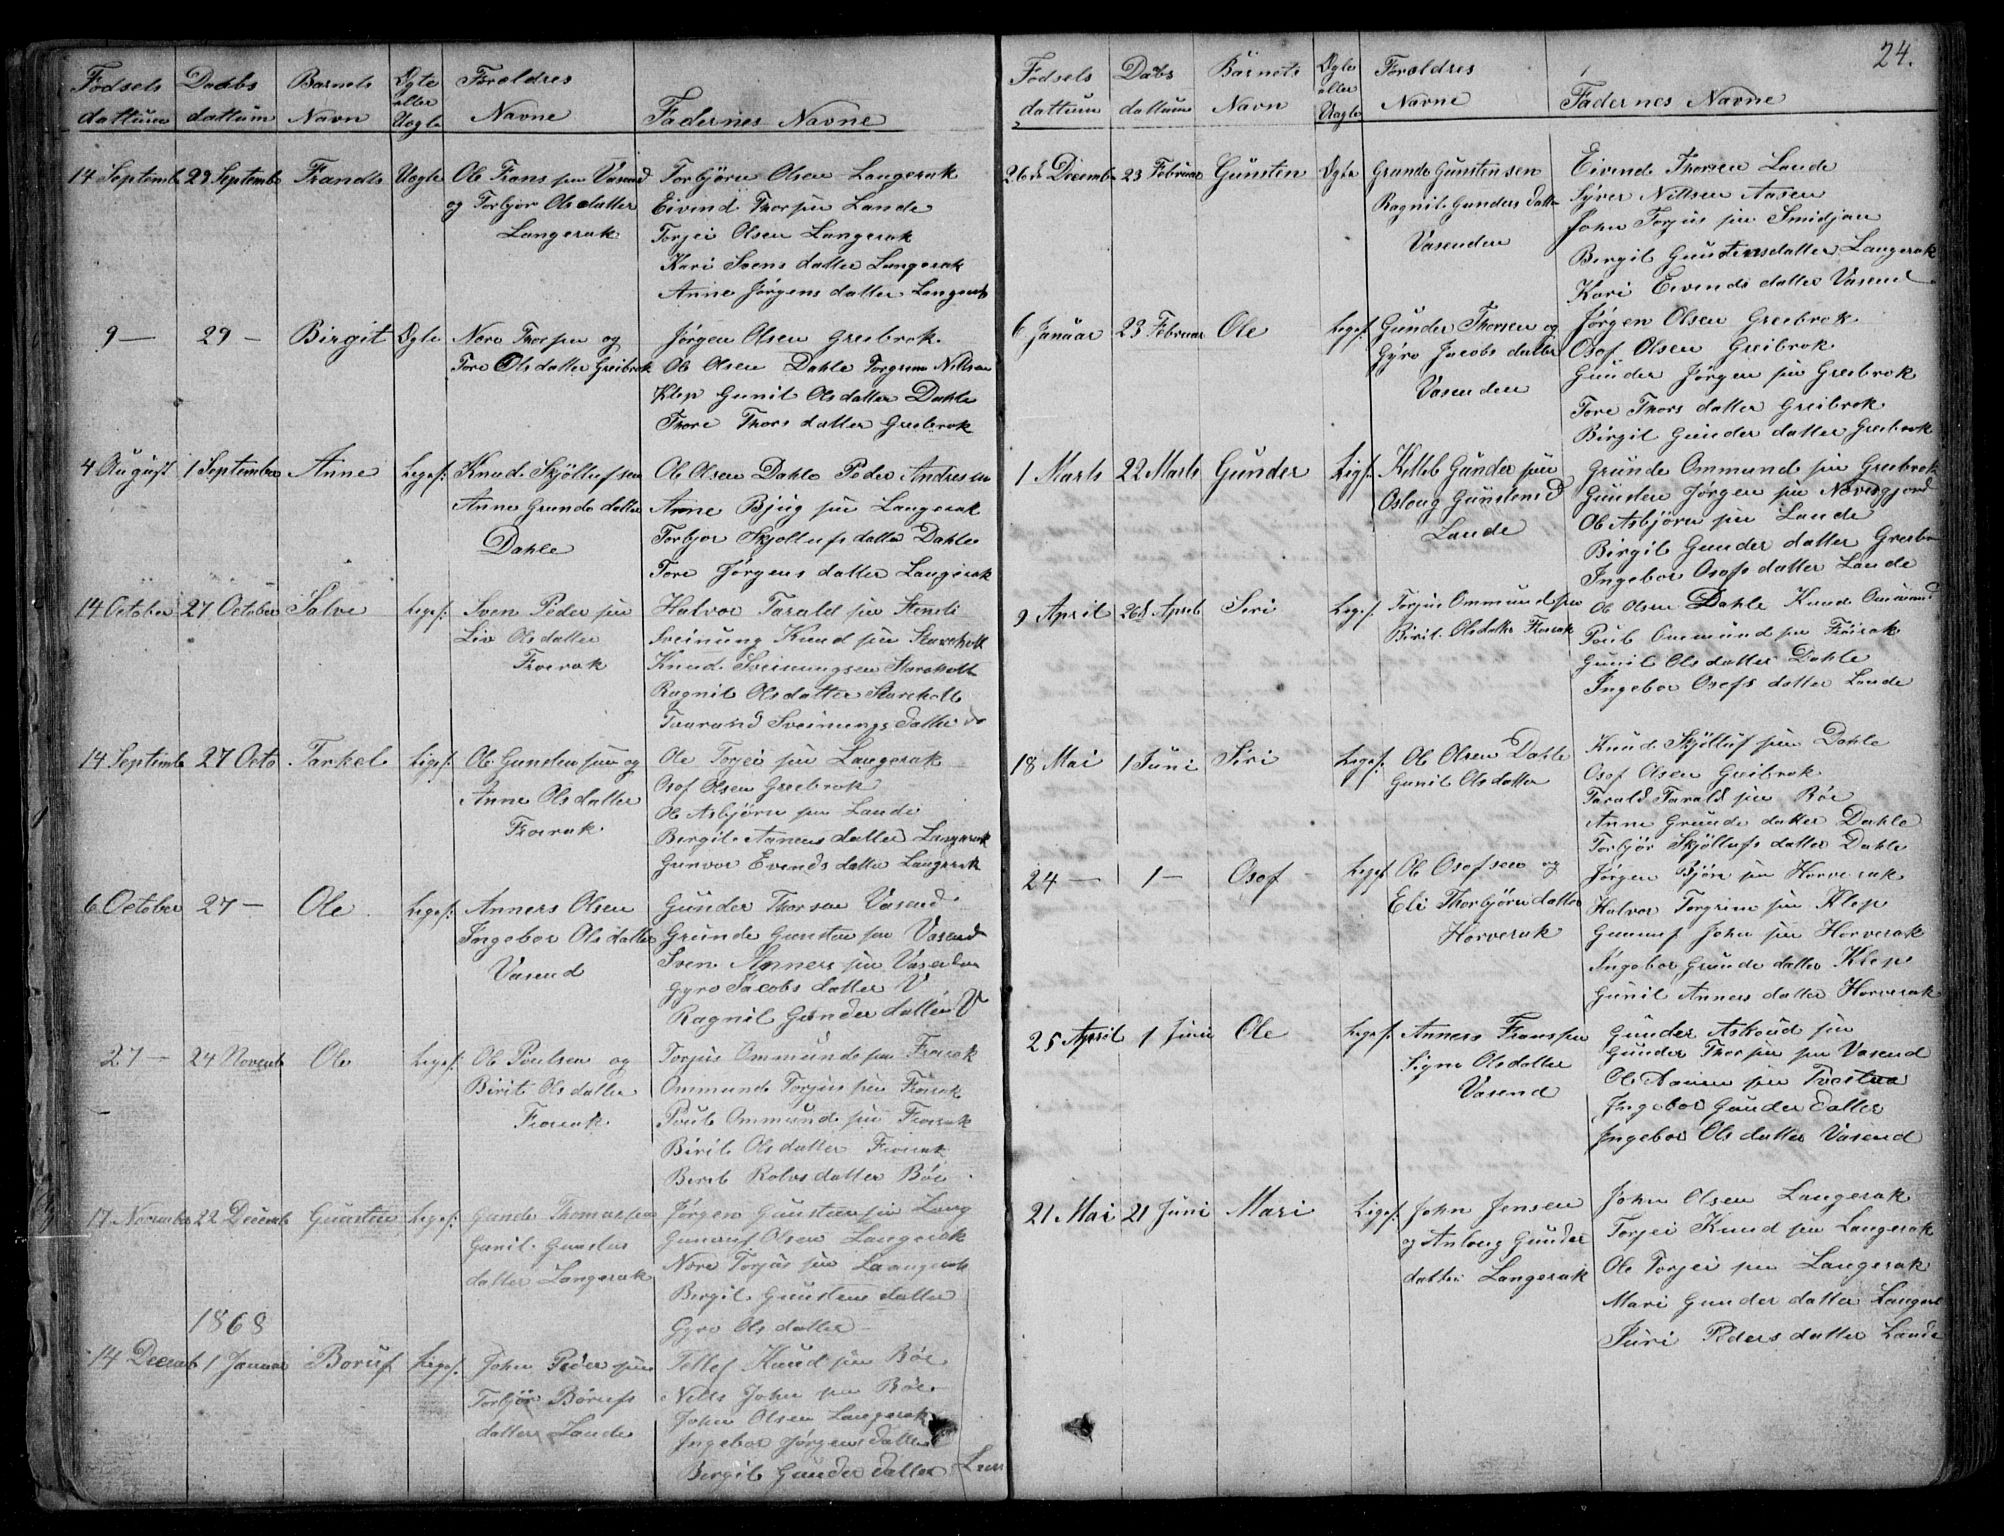 24.
Fødsels dattum
Daabs dattum
Barnets Navn
Ægte eller Uægte
Forældres Navne
Fadernes Navne
14 Septemb 29 Septemb Frandts Uægte Ole Frans sen Vasend
og Torbjør Olsdatter
Langerak
Torbjørn Olsen Langerak
Eivend Thorsen Lande
Torjei Olsen Langerak
Kari Svens datter Langerak
Anne Jørgens datter Langerak
9 — 29 — Birgit Ægte Nere Thorsen og
Tore Olsdatter Greibrok
Jørgen Olsen Greibrok
Ole Olsen Dahle Torgrim Nillsen
Klep Gunil Olsdatter Dahle
Thore Thors datter Greibrok
4 August 1 September Anne Ligesf: Knud Skjøllufsen
Anne Grunds datter
Dahle
Ole Olsen Dahle Peder Andresen
Arne Bjug sen Langerak
Torbjor Skjøllufs datter Dahle
Tore Jørgens datter Langerak
14 October 27 October Salve Ligesf: Sven Peder sen
Liv Olsdatter
Froirak
Halvor Tarald sen
Sveinung Knud sen
Knud Sveinungsen
Ragnil Olsdatter
Sveinungs datter do
14 Septemb 27 Octo Tarkel Ligesf: Ole Gundersen og
Anne Olsdatter
Froirak
Ole Torjei sen Langerak
Osof Olsen Greibrok
Ole Asbjørn sen Lande
Bergit Annens datter Langerak
Gunvor Evends datter Langerak
6 October 27 — Ole Ligesf: Anners Olsen
Ingebor Olsdatter
Vasend
Gunder Thorsen Vasend
Grunde Gunsten sen Vasend
Sven Anners sen Vasenden
Gyro Jacobs datter V
Ragnil Gunder datter V
27 — 24 Novemb Ole Ligesf: Ole Poulsen og
Birit Olsdatter
Froirak
Torjus Ommunds sen Froirak
Ommund Torjus sen Froirak
Poul Ommund sen Froirak
Birit Olsdatter Froirak
Berit Rolvs datter Bøe
17 November 22 Decemb Gunsten Ligesf: Gunde Thomassen
Gunil Gunstens
datter Langerak
Jørgen Gunsten sen Lang
Gunnuf Olsen Langerak
Nere Torjus sen Langerak
Bergit Gunstens datter
Gyro Olsdatter
1868
14 Decemb 1 Januar Boruf Ligesf: John Peder sen
Torbjør Børufs
datter Lande
Tellef Knud sen Bøe
Nills John sen Bøe
John Olsen Langerak
Ingebor Jørgens datter
Bergit Gunder datter
26 d Decemb 23 Februar Gunsten Ægte Grunde Gunstensen
Ragnil Gunders datter
Vasenden
Eivend Thorsen Lande
Syver Nillsen Aasen
John Torjus sen Smidjan
Bergit Gunstensdatter Langerak
Kari Eivends datter Vasend
6 Januar 23 Februar Ole Ligesf: Gunder Thorsen og
Gyro Jacobs datter
Vasenden
Jørgen Olsen Greibrok
Osof Olsen Greibrok
Gunder Jørgen sen Greibrok
Tore Thors datter Greibrok
Birgit Gunder datter Greibrok
1 Marts 22 Marts Gunder Ligf: Kittel Gunder sen
Osloug Gunstens D
Lande
Grunde Ommund sen Greibrok
Gunder Jørgen sen
Ole Asbjørn sen Lande
Birgit Gunder datter Greibr
Ingebor Osofs datter Lande
9 April 26 d April Siri Ligesf: Torjus Ommund sen
Birit Olsdatter Froirak
Ole Olsen Dahle Knud Ommund
Poul Ommund sen Froirak
Gunil Olsdatter Dahle
Ingebor Osofs datter Lande
18 Mai 1 Juni Siri Ligesf: Ole Olsen Dahle
Gunil Olsdatter
Knud Skjølluf sen Dahle
Osof Olsen Greibrok
Tarald Tarald sen Bøe
Anne Grunde datter Dahle
Torbjør Skjøllufs datter Dahle
24 — 1 — Osof Ligesf: Ole Osofsen og
Eli Thorbjørn datter
Horverak
Jørgen Bjørn sen Horverak
Halvor Torgrim sen Klep
Gunnuf John sen Horverak
Ingebor Grunde datter Klep
Gunil Anners datter Horverak
25 April 1 Juni Ole Ligesf: Anners Frans sen
Signe Olsdatter
Vasend
Gunder Askoud sen
Gunder Thor sen Vasend
Ole Aanen sen
Ingebor Gunder datter
Ingebor Olsdatter Vasend
21 Mai 21 Juni Mari Ligesf: John Jensen
og Anloug Gunder
datter Langerak
John Olsen Langerak
Torjei Knud sen Langerak
Ole Torjei sen Langerak
Mari Gunder datter Langerak
Juri Peders datter Lande